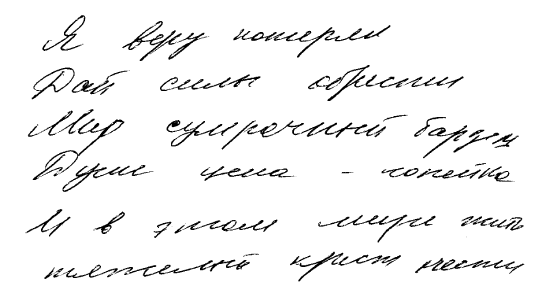 Я веру потерял
Дай силы обрести
Мир сумрачный бардец
Душе цена - копейка
И в этом мире жить
тяжелый крест нести